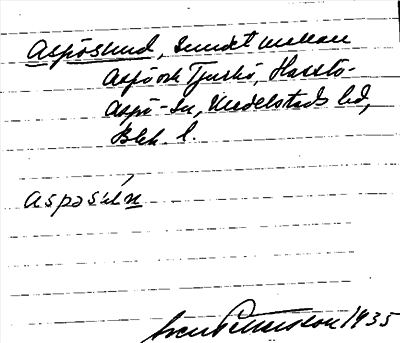 Aspösund, Sundet mellan
Aspö och Tjurkö, Hasslö-
Aspö-sn, Medelstads hd,
Blek. l.
aspəsún
1935